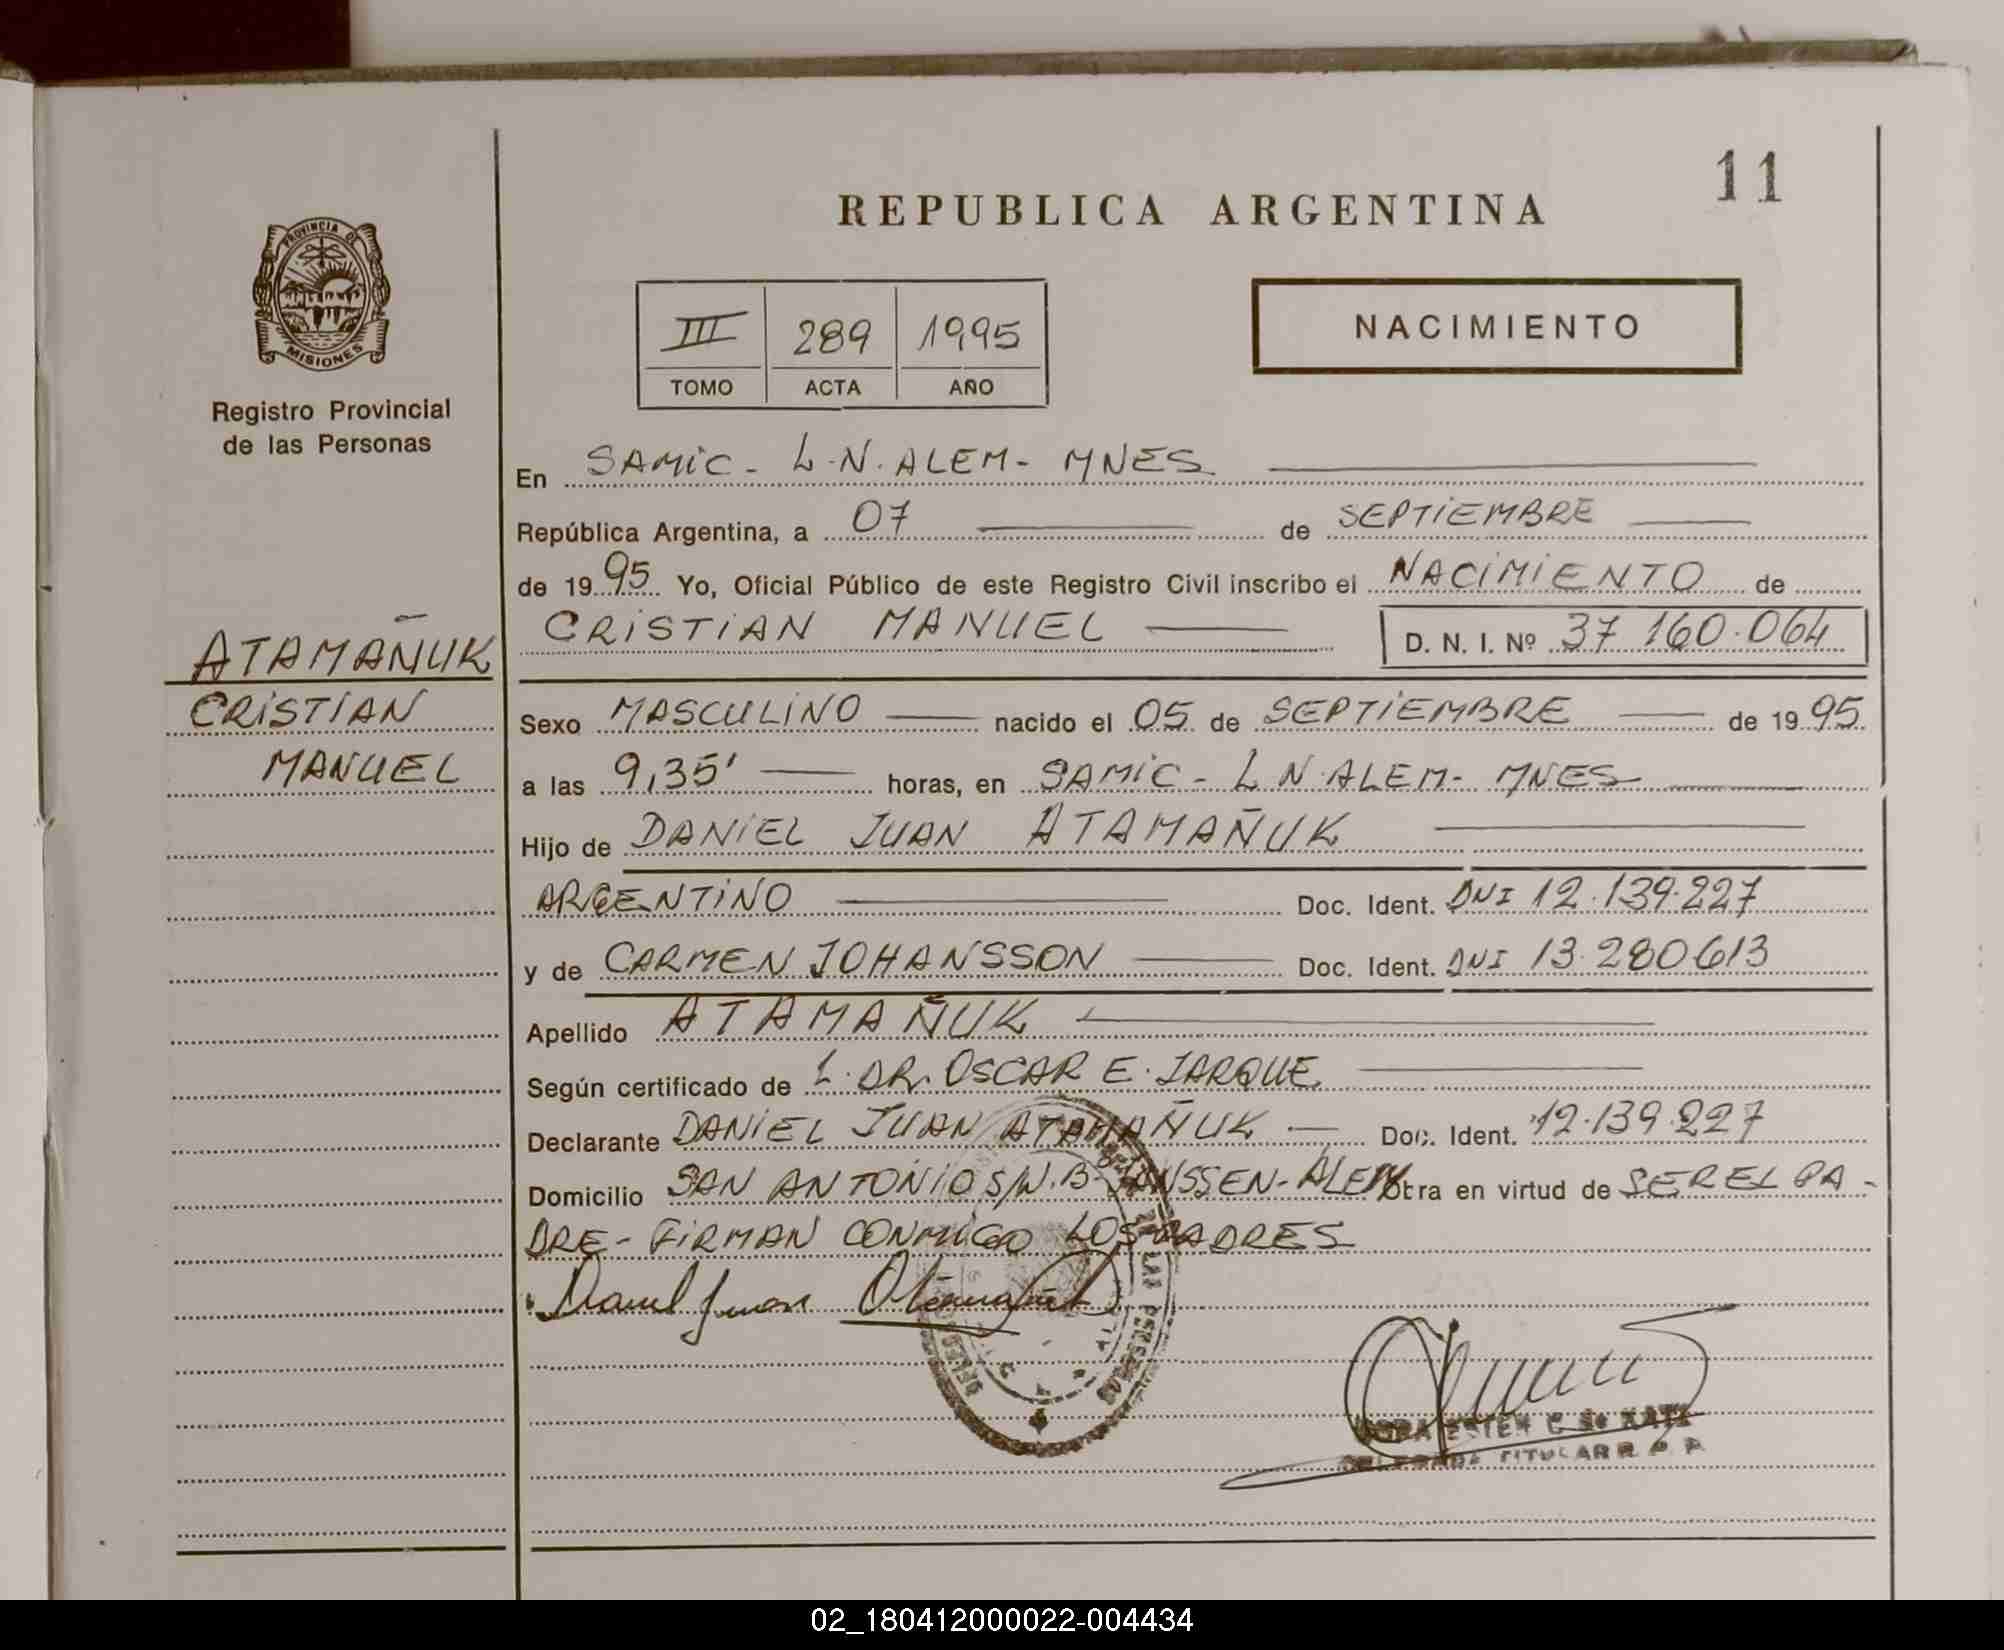 11
REPUBLICA ARGENTINA
PROVINCIA DE
MISIONES
Registro Provincial
de las Personas
III 289 1995
TOMO ACTA AÑO
NACIMIENTO
En SAMIC - L.N. ALEM - MNES
República Argentina, a 07 de SEPTIEMBRE
de 1995 Yo, Oficial Público de este Registro Civil inscribo el NACIMIENTO de
CRISTIAN MANUEL D. N. I. Nº 37 160.064
ATAMAÑUK
CRISTIAN
MANUEL
Sexo MASCULINO nacido el 05 de SEPTIEMBRE de 1995
a las 9,35' horas, en SAMIC - L N. ALEM - MNES
Hijo de DANIEL JUAN ATAMAÑUK
ARGENTINO Doc. Ident. DNI 12.139.227
y de CARMEN JOHANSSON Doc. Ident. DNI 13.280613
Apellido ATAMAÑUK
Según certificado de L. DR. OSCAR E. JARQUE
Declarante DANIEL JUAN ATAMAÑUK Doc. Ident. 12.139.227
Domicilio SAN ANTONIO S/N. B- JANSSEN - ALEM Obra en virtud de SER EL PA-
DRE - FIRMAN CONMIGO LOS PADRES
Daniel Juan Atamañuk
DE LAS PERSONAS
TITULAR R. P. P.
02_180412000022-004434